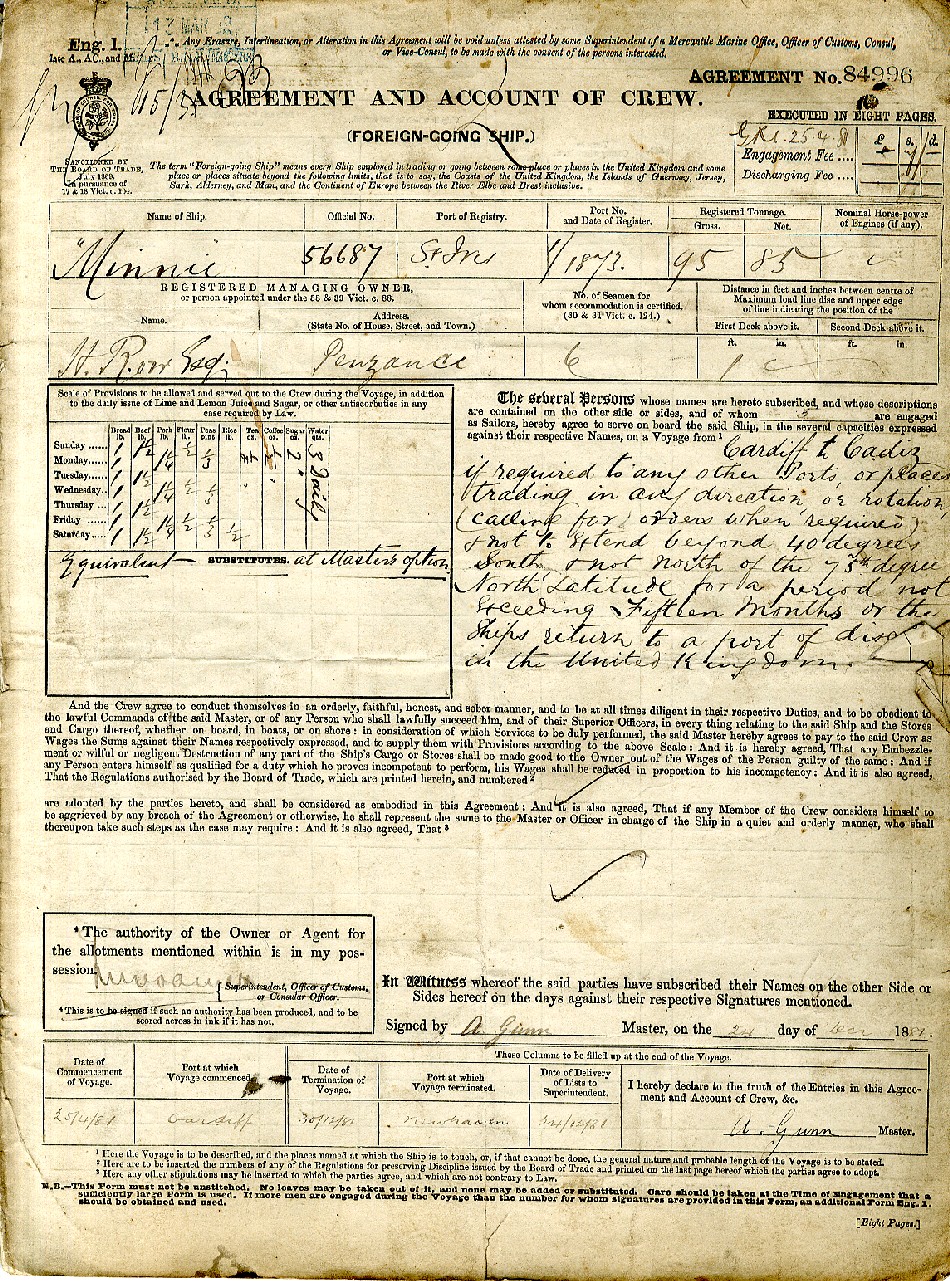 Eng. 1.
Any Erasure, Interlineation, or Alteration in this Agreement will be void unless attested by some Superintendent of a Mercantile Marine Office, Officer of Customs, Consul,
or Vice-Consul, to be made with the consent of the persons interested.
AGREEMENT No. 84996
AGREEMENT AND ACCOUNT OF CREW.
EXECUTED IN EIGHT PAGES.
(FOREIGN-GOING SHIP.)
£ s. d.
Engagement Fee ....
Discharging Fee ....
SANCTIONED BY
THE BOARD OF TRADE,
in pursuance of
17 & 18 Vict. c. 104.
The term "Foreign-going Ship" means every Ship employed in trading or going between some place or places in the United Kingdom and some
place or places situate beyond the following limits, that is to say, the Coasts of the United Kingdom, the Islands of Guernsey, Jersey,
Sark, Alderney, and Man, and the Continent of Europe between the River Elbe and Brest inclusive.
Name of Ship. Official No. Port of Registry. Port No. and Date of Register. Registered Tonnage. Gross. Net. Nominal Horse-power of Engines (if any).
"Minnie 56687 St Ives 1/1873. 95 85
REGISTERED MANAGING OWNER,
or person appointed under the 38 & 39 Vict. c. 88.
No. of Seamen for whom accommodation is certified. (30 & 31 Vict. c. 124.)
Distance in feet and inches between centre of
Maximum load line disc and upper edge
of line indicating the position of the
Name. Address. (State No. of House, Street, and Town.) First Deck above it. Second Deck above it.
ft. in. ft. in.
H. Row Esq. Penzance 6 1
Scale of Provisions to be allowed and served out to the Crew during the Voyage, in addition
to the daily issue of Lime and Lemon Juice and Sugar, or other antiscorbutics in any
case required by Law.
Bread lb. Beef lb. Pork lb. Flour lb. Peas pint Rice lb. Tea oz. Coffee oz. Sugar oz. Water qts.
Sunday...... 1 1½ ½ 2 3 Daily
Monday...... 1 1¼ ⅓
Tuesday...... 1 1½ ½
Wednesday... 1 1¼ ⅓
Thursday..... 1 1½ ½
Friday ...... 1 1¼ ⅓
Saturday..... 1 1½ ½
Equivalent SUBSTITUTES. at Master's option
The several Persons whose names are hereto subscribed, and whose descriptions
are contained on the other side or sides, and of whom are engaged
as Sailors, hereby agree to serve on board the said Ship, in the several capacities expressed
against their respective Names, on a Voyage from ¹
Cardiff to Cadiz
if required to any other Ports, or places
trading in any direction or rotation
(calling for orders when required)
& not to extend beyond 40 degrees
South & not North of the 75th degree
North Latitude for a period not
exceeding Fifteen Months or the
Ships return to a port of disch
in the United Kingdom.
And the Crew agree to conduct themselves in an orderly, faithful, honest, and sober manner, and to be at all times diligent in their respective Duties, and to be obedient to
the lawful Commands of the said Master, or of any Person who shall lawfully succeed him, and of their Superior Officers, in every thing relating to the said Ship and the Stores
and Cargo thereof, whether on board, in boats, or on shore: in consideration of which Services to be duly performed, the said Master hereby agrees to pay to the said Crew as
Wages the Sums against their Names respectively expressed, and to supply them with Provisions according to the above Scale: And it is hereby agreed, That any Embezzle-
ment or wilful or negligent Destruction of any part of the Ship's Cargo or Stores shall be made good to the Owner out of the Wages of the Person guilty of the same: And if
any Person enters himself as qualified for a duty which he proves incompetent to perform, his Wages shall be reduced in proportion to his incompetency: And it is also agreed,
That the Regulations authorised by the Board of Trade, which are printed herein, and numbered ²
are adopted by the parties hereto, and shall be considered as embodied in this Agreement: And it is also agreed, That if any Member of the Crew considers himself to
be aggrieved by any breach of the Agreement or otherwise, he shall represent the same to the Master or Officer in charge of the Ship in a quiet and orderly manner, who shall
thereupon take such steps as the case may require: And it is also agreed, That ³
*The authority of the Owner or Agent for
the allotments mentioned within is in my pos-
session.
Superintendent, Officer of Customs,
or Consular Officer.
*This is to be signed if such an authority has been produced, and to be
scored across in ink if it has not.
In Witness whereof the said parties have subscribed their Names on the other Side or
Sides hereof on the days against their respective Signatures mentioned.
Signed by A. Gunn Master, on the 24 day of Dec 1881.
These Columns to be filled up at the end of the Voyage.
Date of Commencement of Voyage. Port at which Voyage commenced. Date of Termination of Voyage. Port at which Voyage terminated. Date of Delivery of Lists to Superintendent.
I hereby declare to the truth of the Entries in this Agree-
ment and Account of Crew, &c.
25/4/81 Cardiff Newhaven
A. Gunn Master.
¹ Here the Voyage is to be described, and the places named at which the Ship is to touch, or, if that cannot be done, the general nature and probable length of the Voyage is to be stated.
² Here are to be inserted the numbers of any of the Regulations for preserving Discipline issued by the Board of Trade and printed on the last page hereof which the parties agree to adopt.
³ Here any other stipulations may be inserted to which the parties agree, and which are not contrary to Law.
N.B.—This Form must not be unstitched. No leaves may be taken out of it, and none may be added or substituted. Care should be taken at the Time of Engagement that a
sufficiently large Form is used. If more men are engaged during the Voyage than the number for whom signatures are provided in this Form, an additional Form Eng. 1.
should be obtained and used.
[Eight Pages.]